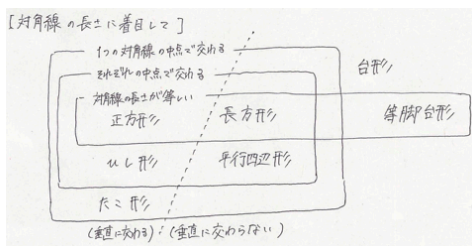 [対角線の長さに着目して]
1つの対角線の中点で交わる
それぞれの中点で交わる
台形
対角線の長さが等しい
正方形 長方形 等脚台形
ひし形 平行四辺形
たこ形
(垂直に交わる) : (垂直に交わらない)